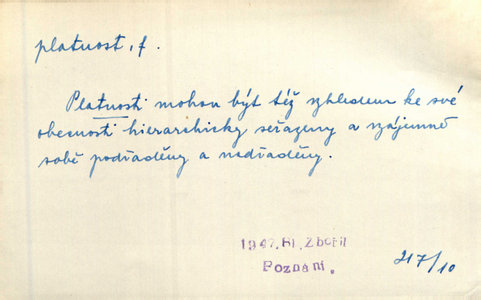 platnost, f.
Platnosti mohou být též vzhledem ke své
obecnosti hierarchicky seřazeny a vzájemně
sobě podřaděny a nadřaděny.
1947, Bl. Zbořil
Poznání.
217/10